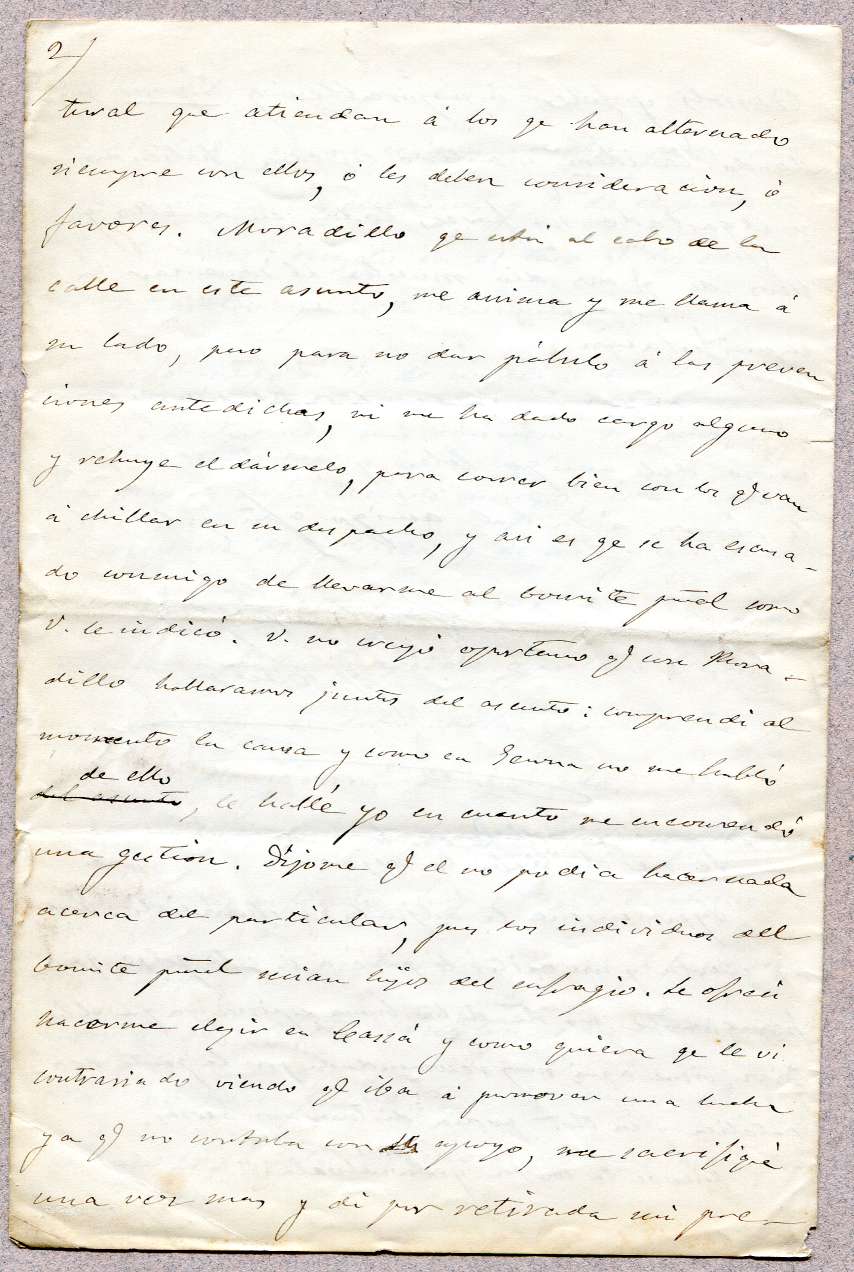 2)
tural que atiendan á los qe han alternado
siempre con ellos, ó les deben consideracion, ó
favores. Moradillo qe está al cabo de la
calle en este asunto, me anima y me llama á
su lado, pero para no dar pábulo á las preven
ciones antedichas, ni me ha dado cargo alguno
y rehuye el dármelo, para correr bien con los q van
á chillar en su despacho, y asi es qe se ha escusa-
do conmigo de llevarme al Comité pral como
V. le indicó. V. no creyó oportuno q con Mora-
dillo hablaramos juntos del asunto: comprendi al
momento la causa y como en Gerona no me habló
de ello
del asunto, le hablé yo en cuanto me encomendó
una gestion. Díjome q el no podia hacer nada
acerca del particular, pues los individuos del
Comité pral serian hijos del sufragio. Le ofreci
hacerme elejir en Cassá y como quiera qe le vi
contrariado viendo q iba á promover una lucha
ya q no contaba con su apoyo, me sacrifiqué
una vez mas y di por retirada mi pre-